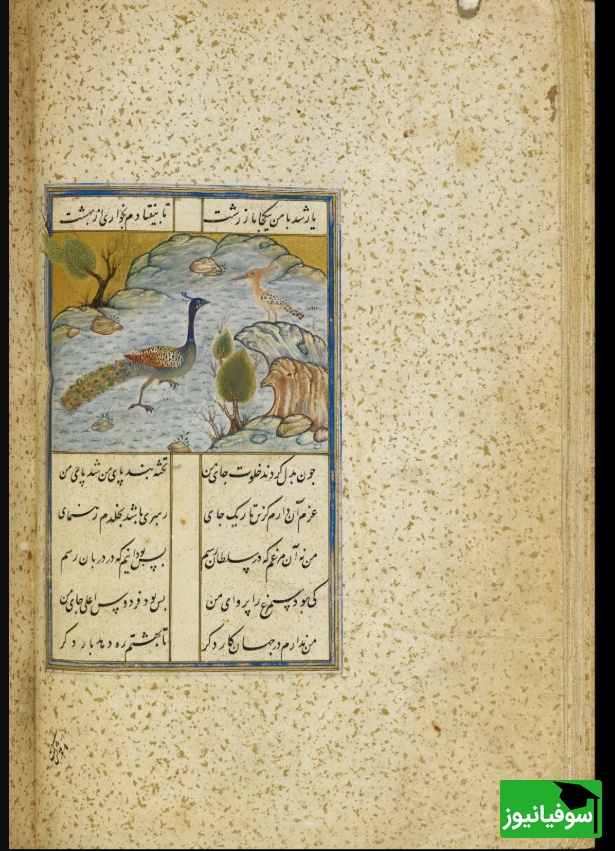 یار شد با من بیکجا مار زشت تا بیفتادم بخواری از بهشت
چون بدل کردند خلوت جای من تخته بند پای من شد پای من
عزم آن دارم کزین تاریک جای رهبری باشد بخلدم رهنمای
من نه آن مرغم که در سلطان رسم بس بود اینم که در دربان رسم
کی بود سیمرغ را پروای من بس بود فردوس اعلی جای من
من ندارم در جهان کار دکر تا بهشتم ره دهد بار دکر
سوفیانیوز